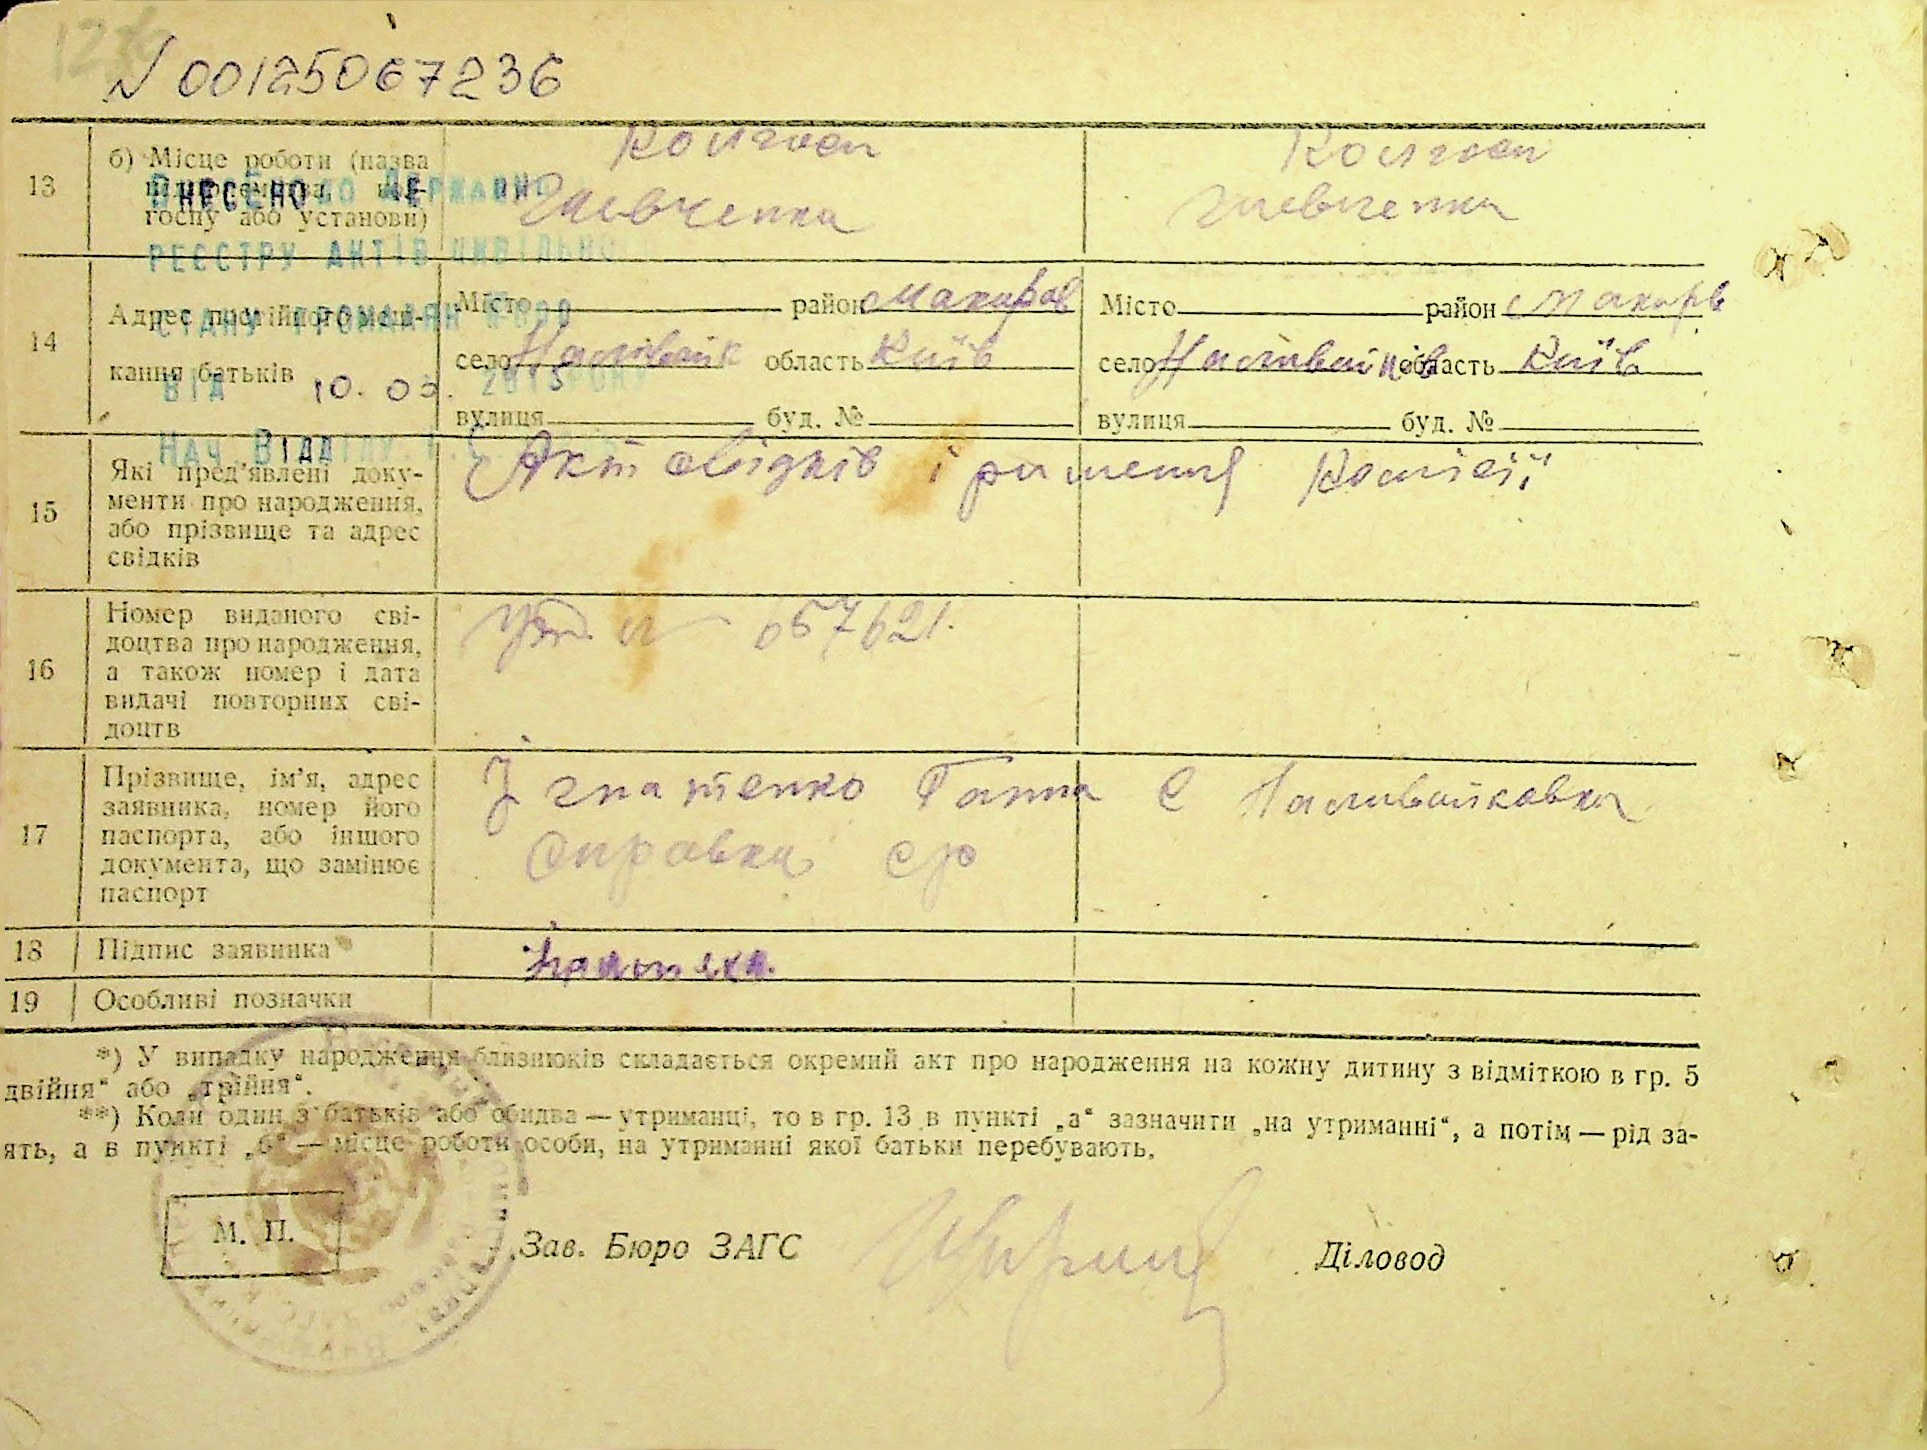 N 00125067236
13
б) Місце роботи (назва
підприємства, кол-
госпу або установи)
Колгосп
Шевченка
Колгосп
Шевченка
Внесено до Державно
реєстру актів цивільно
стану громадян
від 10. 03. 2015 року
Нач. Відділу
14
Адрес постійного меш-
кання батьків
Місто район Макарів
село Наливайк область Київ
вулиця буд. №
Місто район Макарів
село Наливайків область Київ
вулиця буд. №
15
Які пред'явлені доку-
менти про народження,
або прізвище та адрес
свідків
Акт свідків і рішення Комісії
16
Номер виданого сві-
доцтва про народження,
а також номер і дата
видачі повторних сві-
доцтв
657621.
17
Прізвище, ім'я, адрес
заявника, номер його
паспорта, або іншого
документа, що замінює
паспорт
Ігнатенко Ганна с Наливайковка
Справка ср
18
Підпис заявника
19
Особливі позначки
*) У випадку народження близнюків складається окремий акт про народження на кожну дитину з відміткою в гр. 5
двійня“ або „трійня“.
**) Коли один з батьків або обидва — утриманці, то в гр. 13 в пункті „а“ зазначити „на утриманні“, а потім — рід за-
ять, а в пункті „б“ — місце роботи особи, на утриманні якої батьки перебувають.
М. П.
Зав. Бюро ЗАГС
Діловод